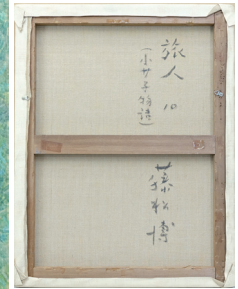 旅人 10
(小女子物語)
藤松博